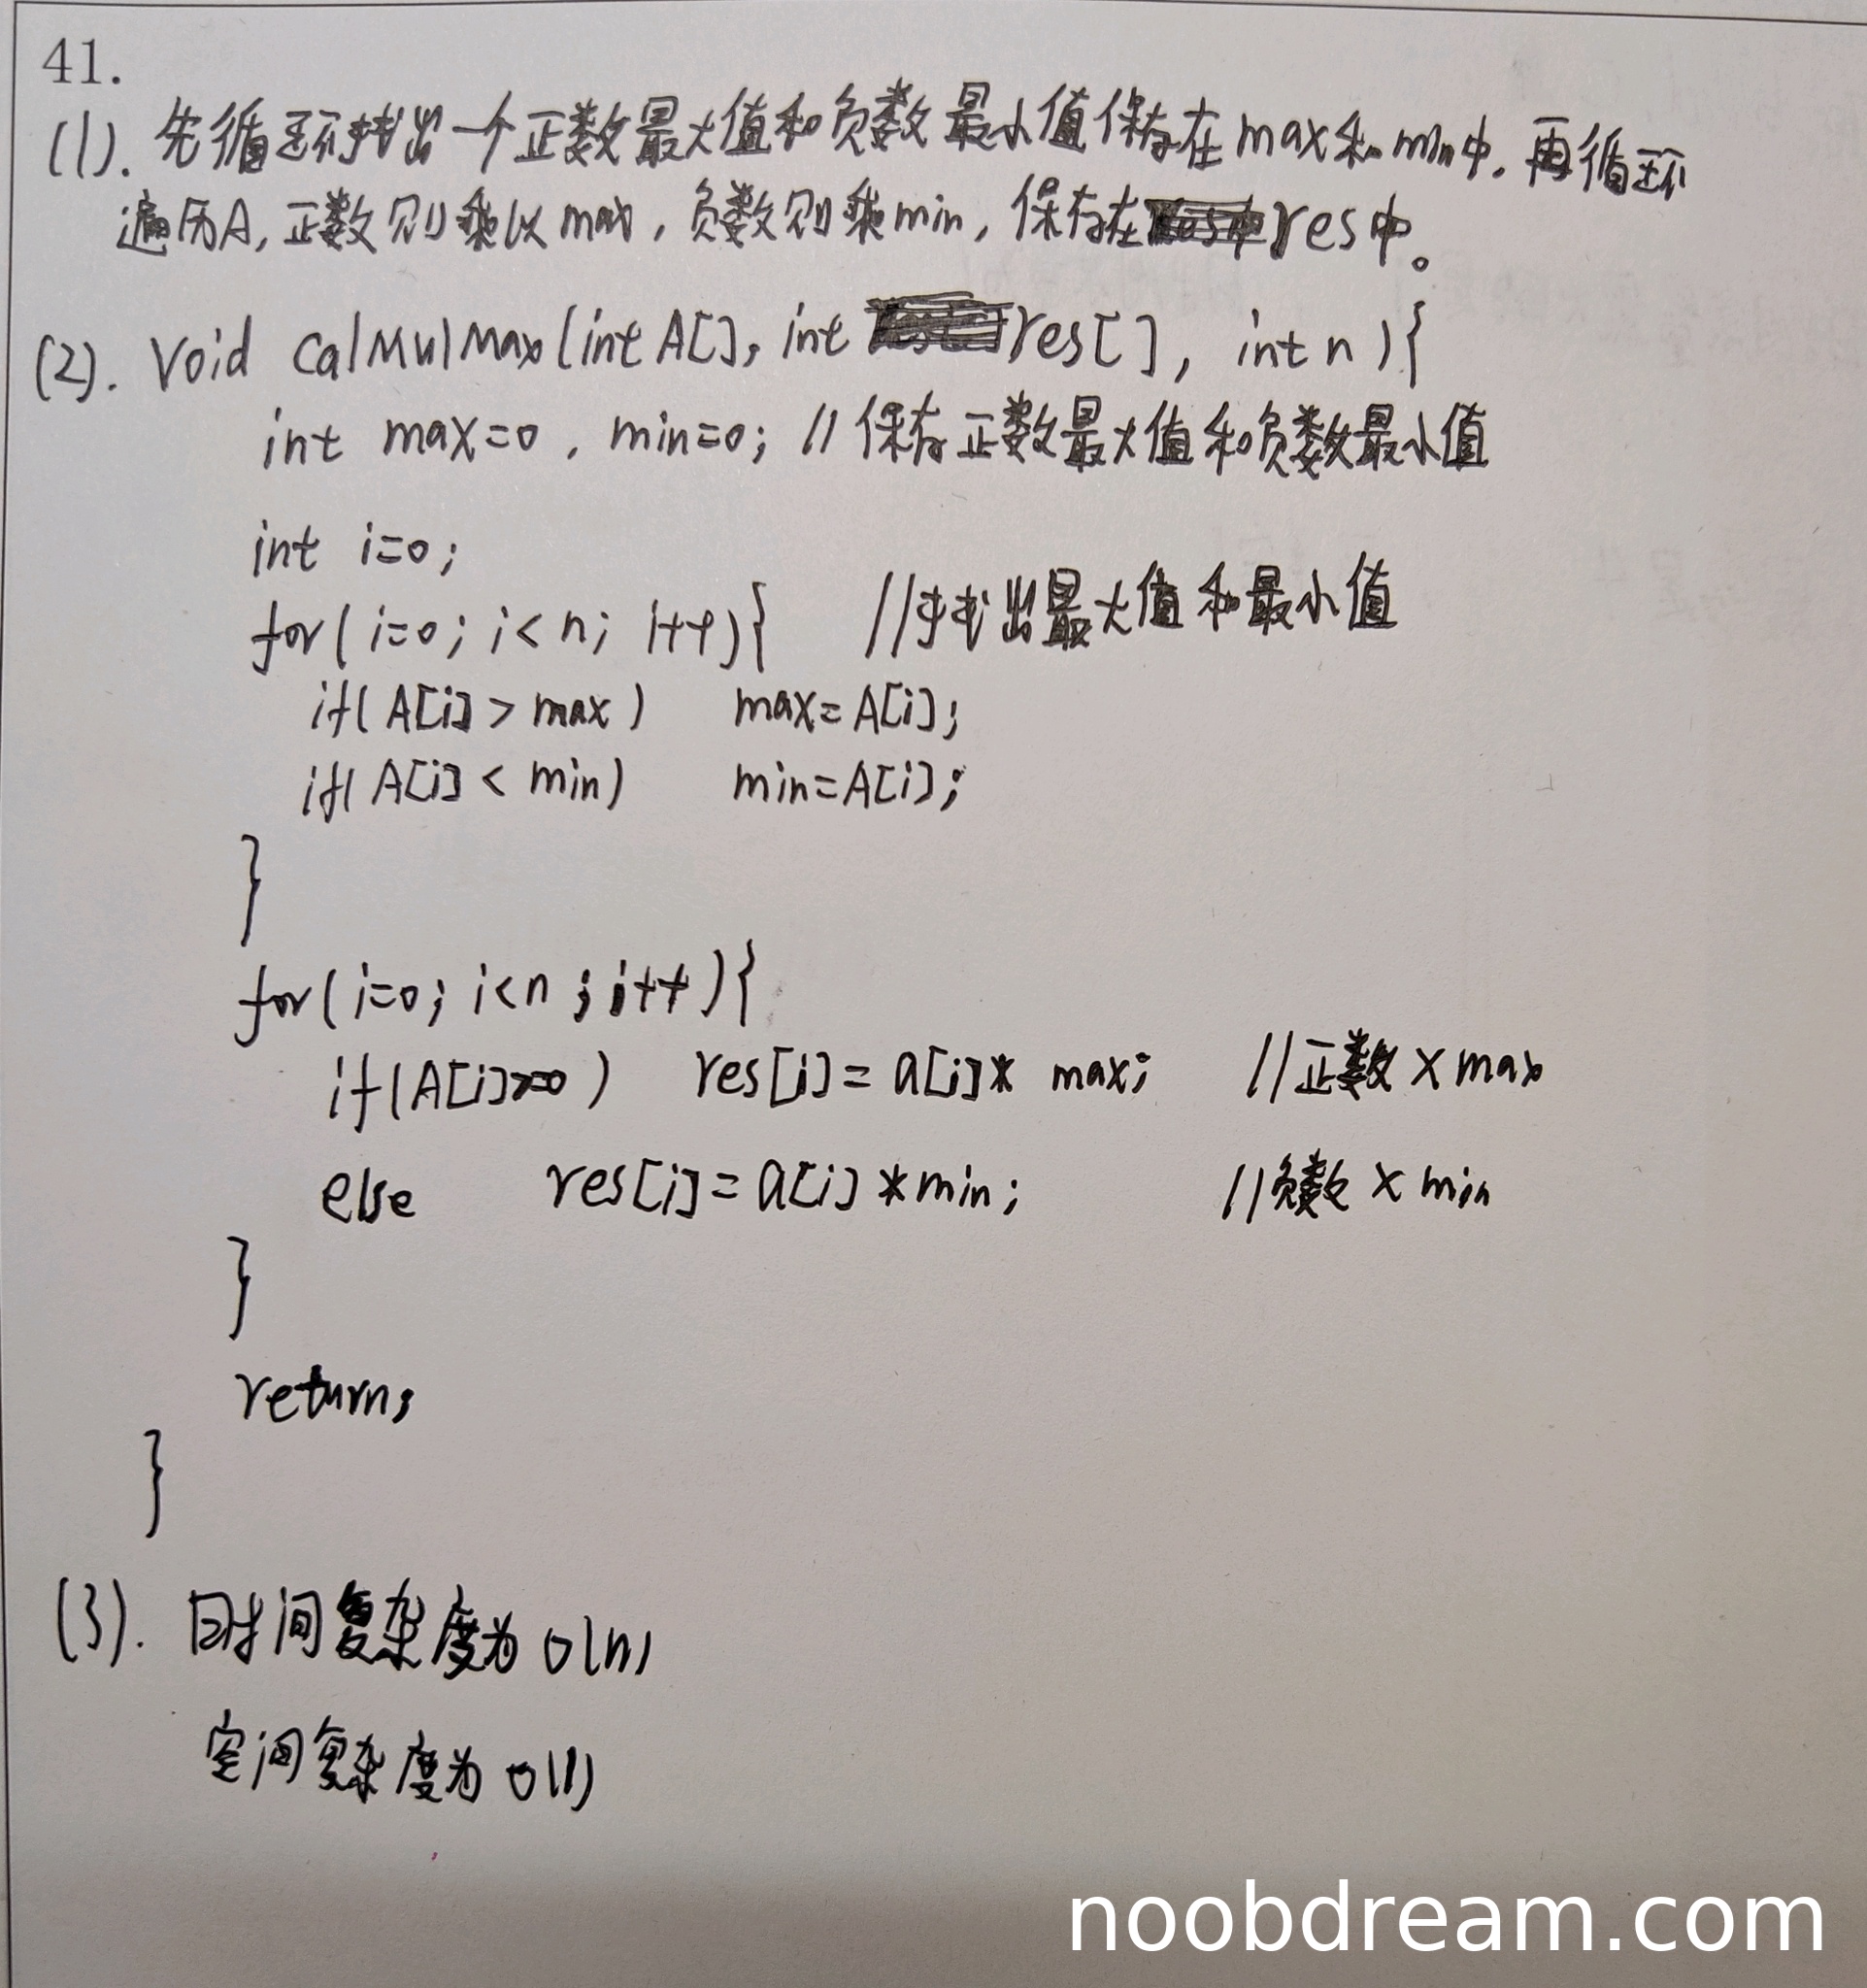 41.
(1). 先循环找出一个正数最大值和负数最小值保存在max和min中. 再循环
遍历A, 正数则乘以max, 负数则乘min, 保存在res中。
(2). Void CalMulMax(int A[], int res[], int n){
int max=0, min=0; //保存正数最大值和负数最小值
int i=0;
for(i=0; i<n; i++){ //找出最大值和最小值
if(A[i] > max) max=A[i];
if(A[i] < min) min=A[i];
}
for(i=0; i<n; i++){
if(A[i]>=0) res[i]=a[i]* max; //正数×max
else res[i]=a[i]*min; //负数×min
}
return;
}
(3). 时间复杂度为O(n)
空间复杂度为O(1)
noobdream.com